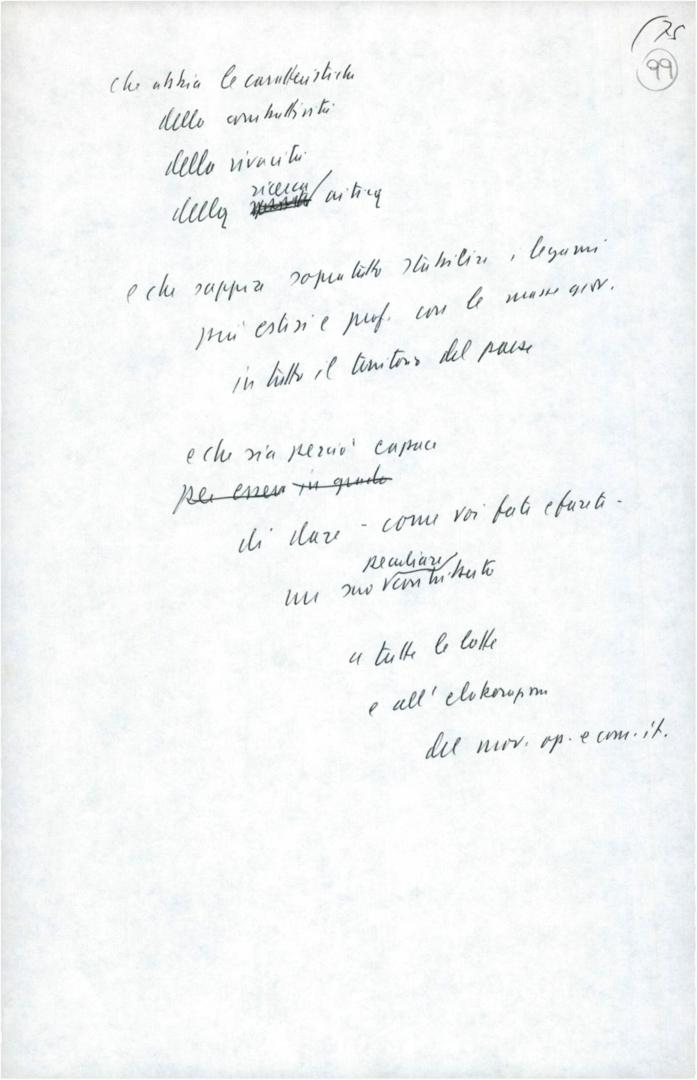 175
99
che abbia le caratteristiche
della combattività
della vivacità
della ricerca critica
e che sappia sopratutto stabilire i legami
più estesi e prof. con le masse giov.
in tutto il territorio del paese
e che sia perciò capace
per essere in grado
di dare - come voi fate e farete -
un suo peculiare contributo
a tutte le lotte
e all'elaborazione
del mov. op. e com. it.